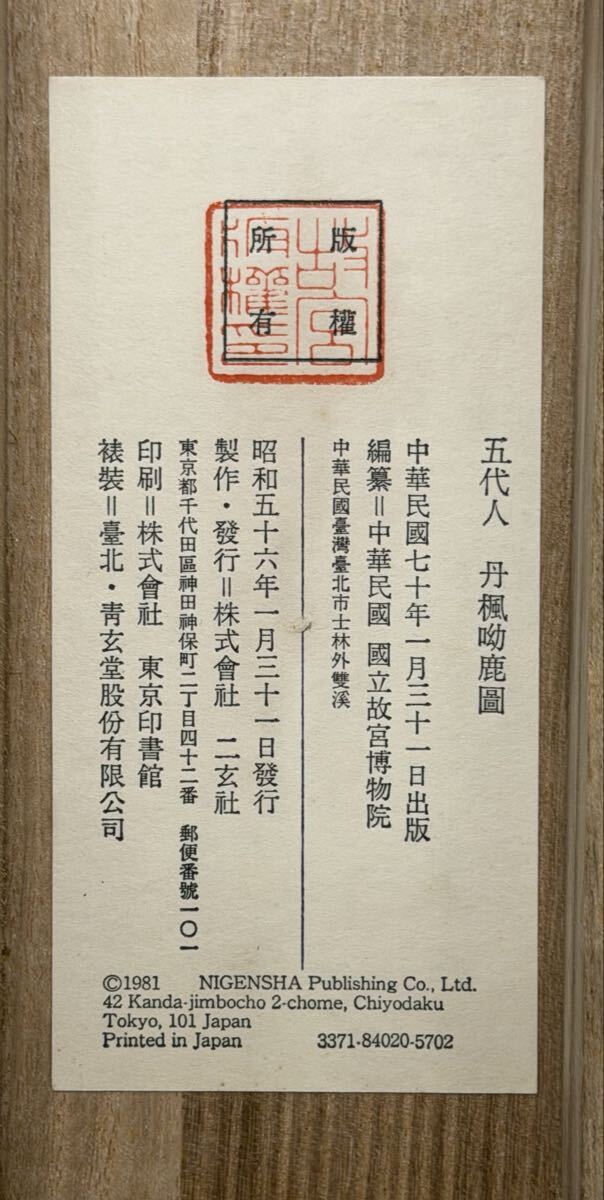 版權
所有
故宮
版權印
五代人　丹楓呦鹿圖
中華民國七十年一月三十一日出版
編纂＝中華民國　國立故宮博物院
中華民國臺灣臺北市士林外雙溪
昭和五十六年一月三十一日發行
製作・發行＝株式會社　二玄社
東京都千代田區神田神保町二丁目四十二番　郵便番號一〇一
印刷＝株式會社　東京印書館
裱裝＝臺北・靑玄堂股份有限公司
©1981　NIGENSHA Publishing Co., Ltd.
42 Kanda-jimbocho 2-chome, Chiyodaku
Tokyo, 101 Japan
Printed in Japan　3371-84020-5702